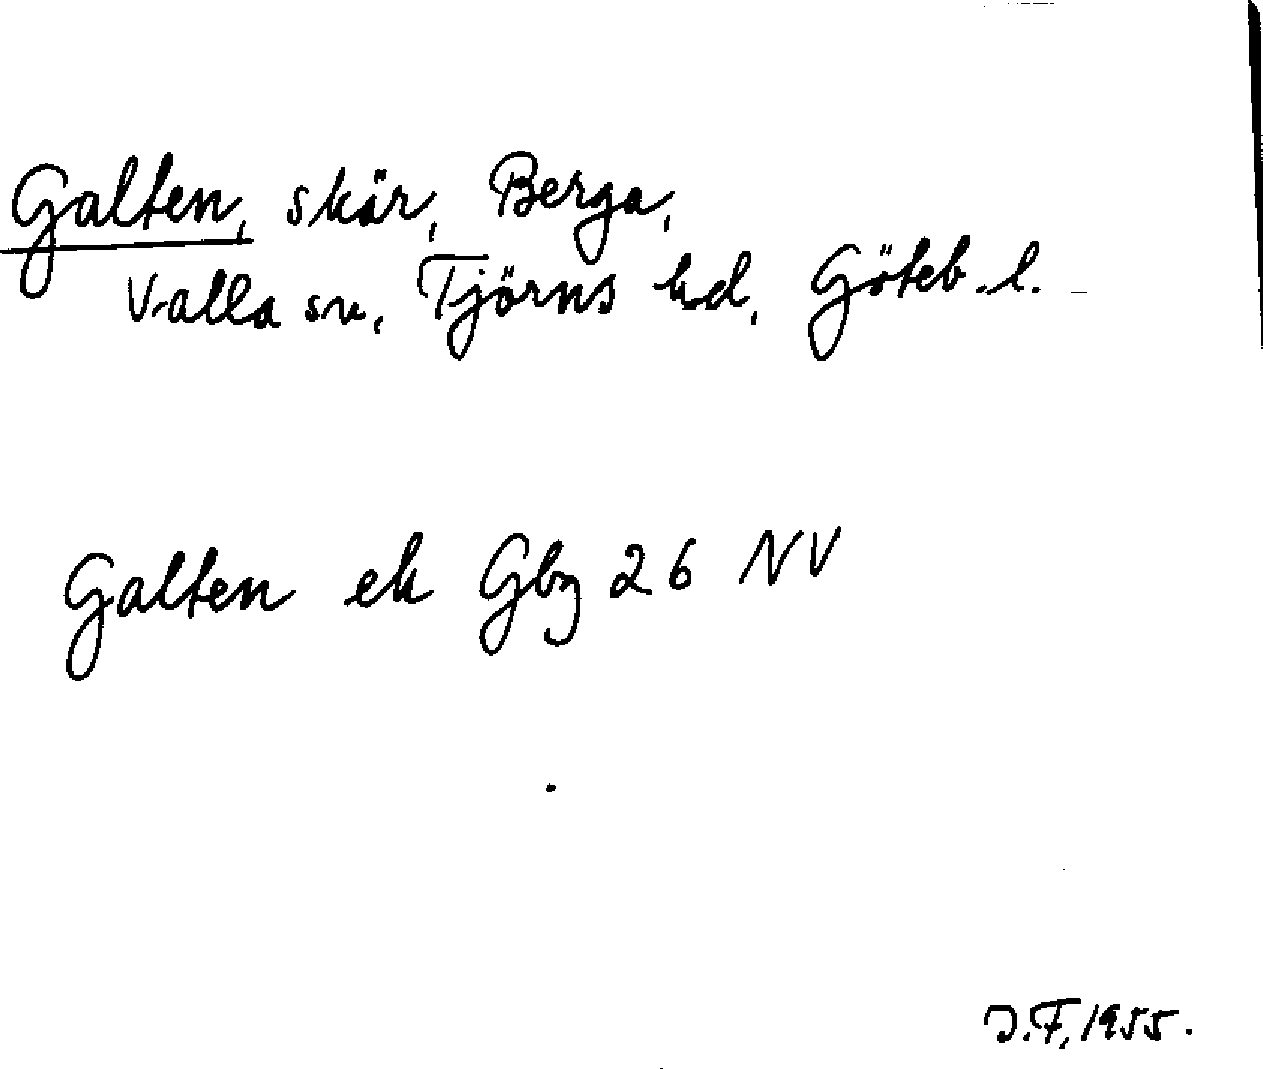 Galten, skär, Berga,
Valla sn, Tjörns hd, Göteb. l.
Galten ek Gbg 26 NV
J.F. 1955.